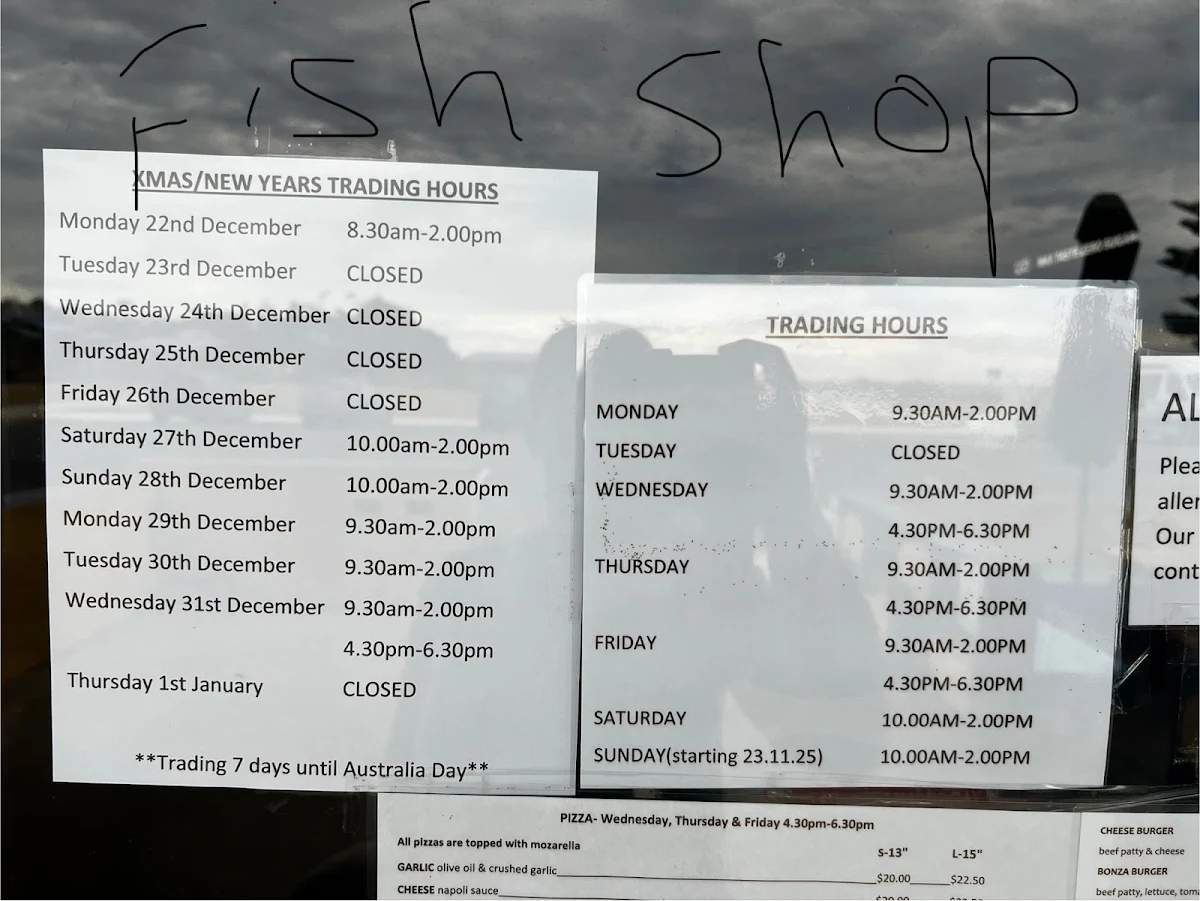 Fish Shop
XMAS/NEW YEARS TRADING HOURS
Monday 22nd December 8.30am-2.00pm
Tuesday 23rd December CLOSED
Wednesday 24th December CLOSED
Thursday 25th December CLOSED
Friday 26th December CLOSED
Saturday 27th December 10.00am-2.00pm
Sunday 28th December 10.00am-2.00pm
Monday 29th December 9.30am-2.00pm
Tuesday 30th December 9.30am-2.00pm
Wednesday 31st December 9.30am-2.00pm
4.30pm-6.30pm
Thursday 1st January CLOSED
**Trading 7 days until Australia Day**
TRADING HOURS
MONDAY 9.30AM-2.00PM
TUESDAY CLOSED
WEDNESDAY 9.30AM-2.00PM
4.30PM-6.30PM
THURSDAY 9.30AM-2.00PM
4.30PM-6.30PM
FRIDAY 9.30AM-2.00PM
4.30PM-6.30PM
SATURDAY 10.00AM-2.00PM
SUNDAY(starting 23.11.25) 10.00AM-2.00PM
AL
Plea
aller
Our
cont
PIZZA- Wednesday, Thursday & Friday 4.30pm-6.30pm
All pizzas are topped with mozarella
S-13" L-15"
GARLIC olive oil & crushed garlic $20.00 $22.50
CHEESE napoli sauce
CHEESE BURGER
beef patty & cheese
BONZA BURGER
beef patty, lettuce, toma